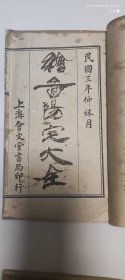 民國三年仲秋月
繪圖陽宅大全
上海會文堂書局印行